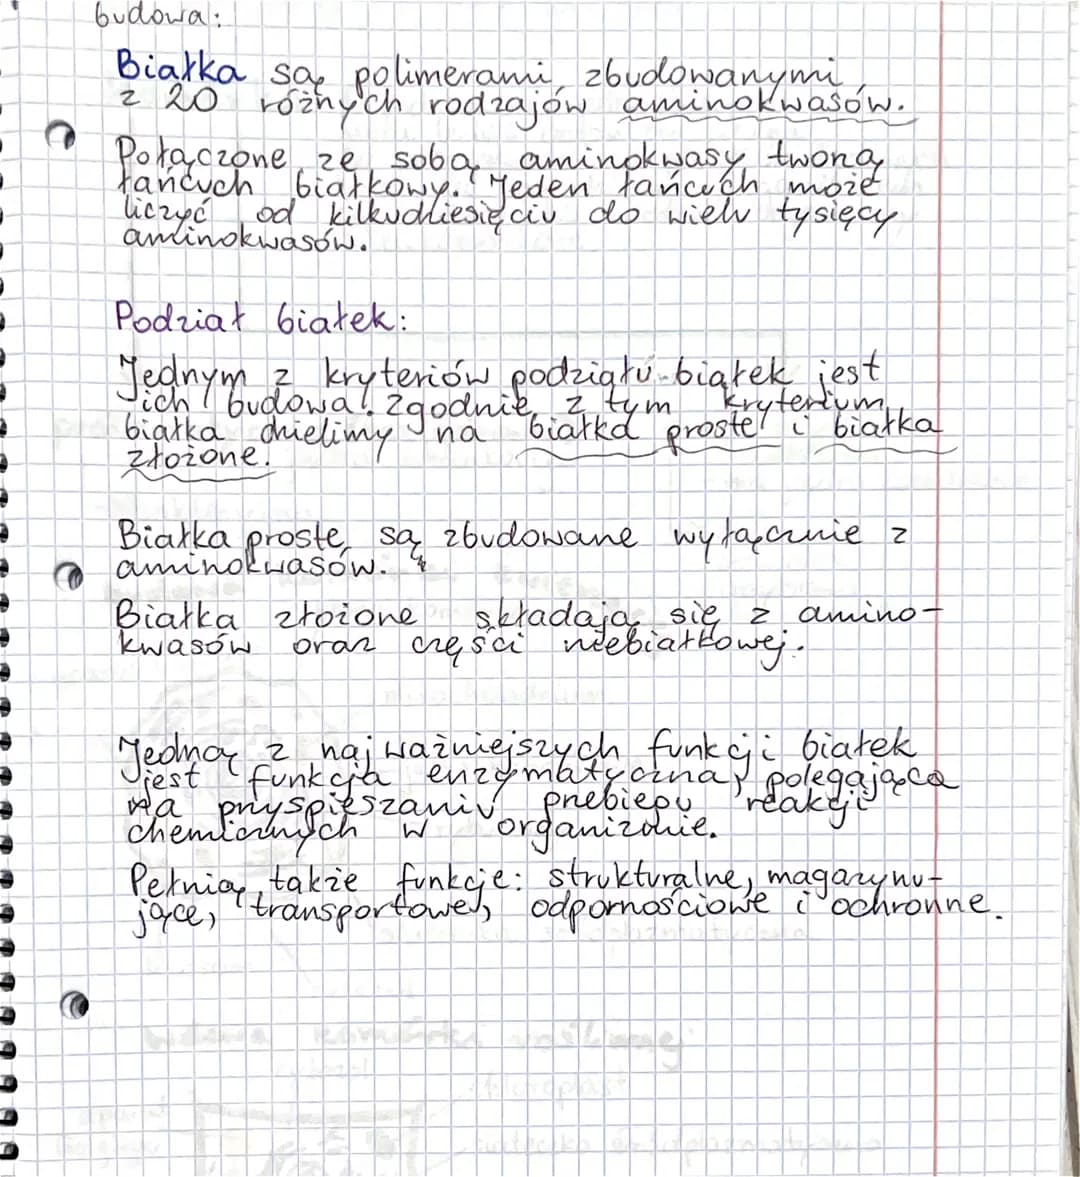 budowa:
Białka są polimerami zbudowanymi
z 20 różnych rodzajów aminokwasów.
Połączone ze sobą aminokwasy tworzą
łańcuch białkowy. Jeden łańcuch może
liczyć od kilkudziesięciu do wielu tysięcy
aminokwasów.
Podział białek:
Jednym z kryteriów podziału białek jest
ich budowa. Zgodnie z tym kryterium
białka dzielimy na białka proste i białka
złożone.
Białka proste są zbudowane wyłącznie z
aminokwasów.
Białka złożone składają się z amino-
kwasów oraz części niebiałkowej.
Jedną z najważniejszych funkcji białek
jest funkcja enzymatyczna, polegająca
na przyspieszaniu przebiegu reakcji
chemicznych w organizmie.
Pełnią także funkcje: strukturalne, magazynu-
jące, transportowe, odpornościowe i ochronne.